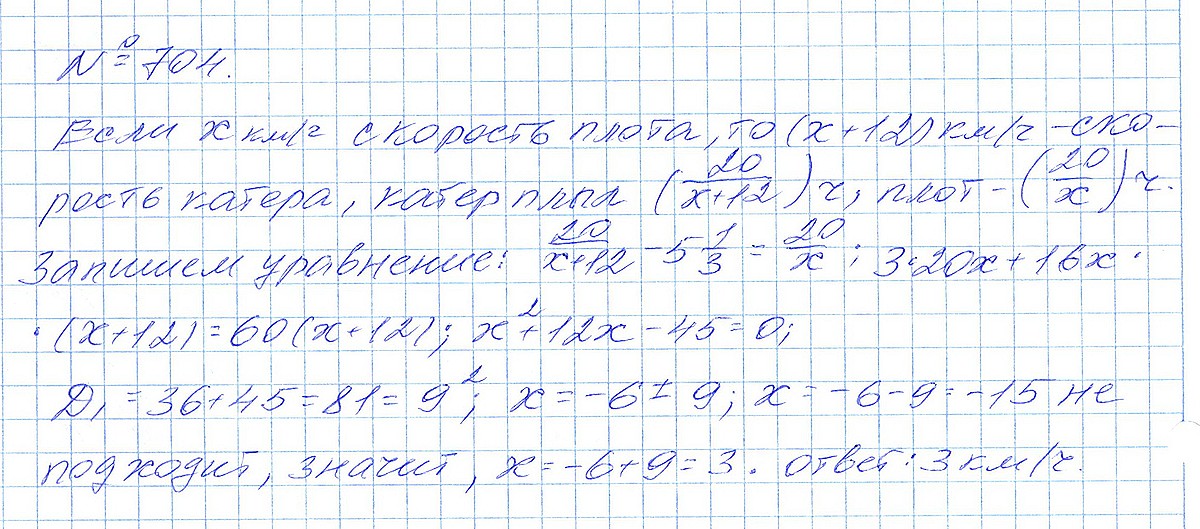 № 704.
Если x км/ч скорость плота, то (x+12) км/ч – ско-
рость катера, катер плыл (20/(x+12)) ч, плот – (20/x) ч.
Запишем уравнение: 20/(x+12) - 5 1/3 = 20/x ; 3·20x + 16x ·
· (x+12) = 60(x+12); x² + 12x - 45 = 0;
D₁ = 36+45 = 81 = 9²; x = -6 ± 9; x = -6-9 = -15 не
подходит, значит, x = -6+9 = 3. ответ: 3 км/ч.